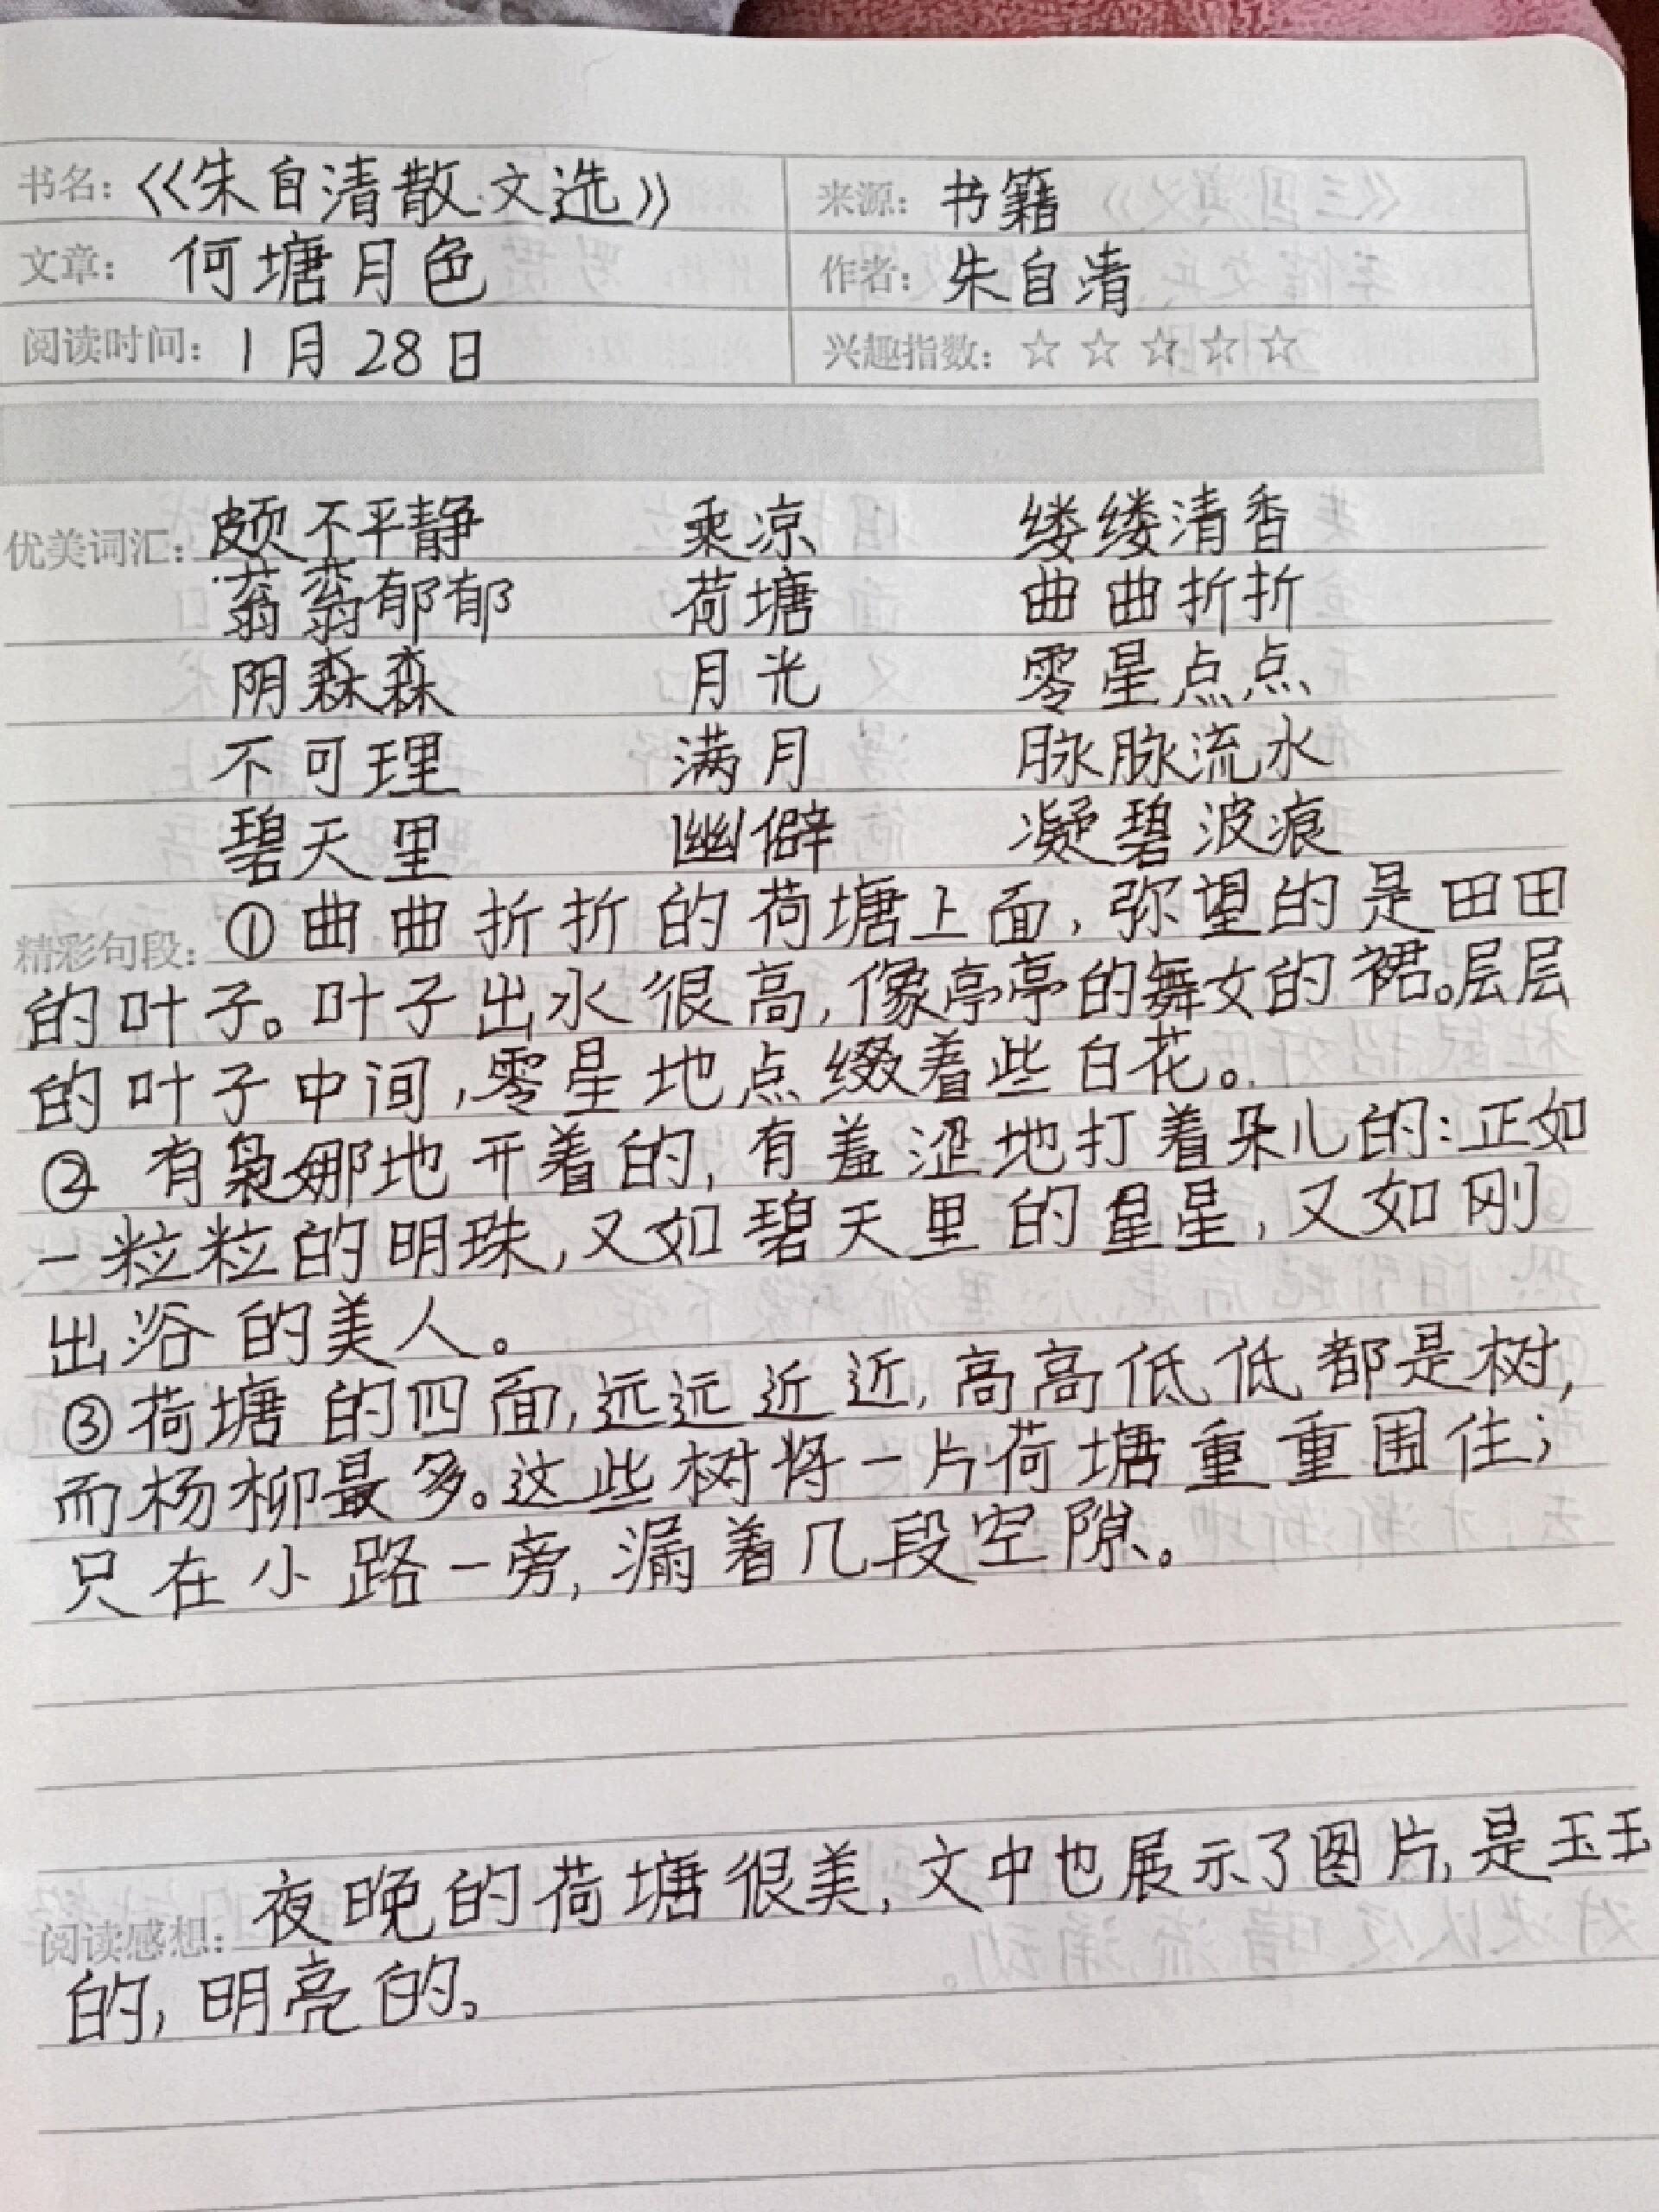 书名：《朱自清散文选》 来源：书籍
文章：何塘月色 作者：朱自清
阅读时间：1月28日 兴趣指数：☆☆☆☆☆
优美词汇：颇不平静 乘凉 缕缕清香
蓊蓊郁郁 荷塘 曲曲折折
阴森森 月光 零星点点
不可理 满月 脉脉流水
碧天里 幽僻 凝碧波痕
精彩句段：①曲曲折折的荷塘上面，弥望的是田田
的叶子。叶子出水很高，像亭亭的舞女的裙。层层
的叶子中间，零星地点缀着些白花。
② 有袅娜地开着的，有羞涩地打着朵儿的：正如
一粒粒的明珠，又如碧天里的星星，又如刚
出浴的美人。
③荷塘的四面，远远近近，高高低低都是树，
而杨柳最多。这些树将一片荷塘重重围住；
只在小路一旁，漏着几段空隙。
阅读感想：夜晚的荷塘很美，文中也展示了图片，是玉玉
的，明亮的。